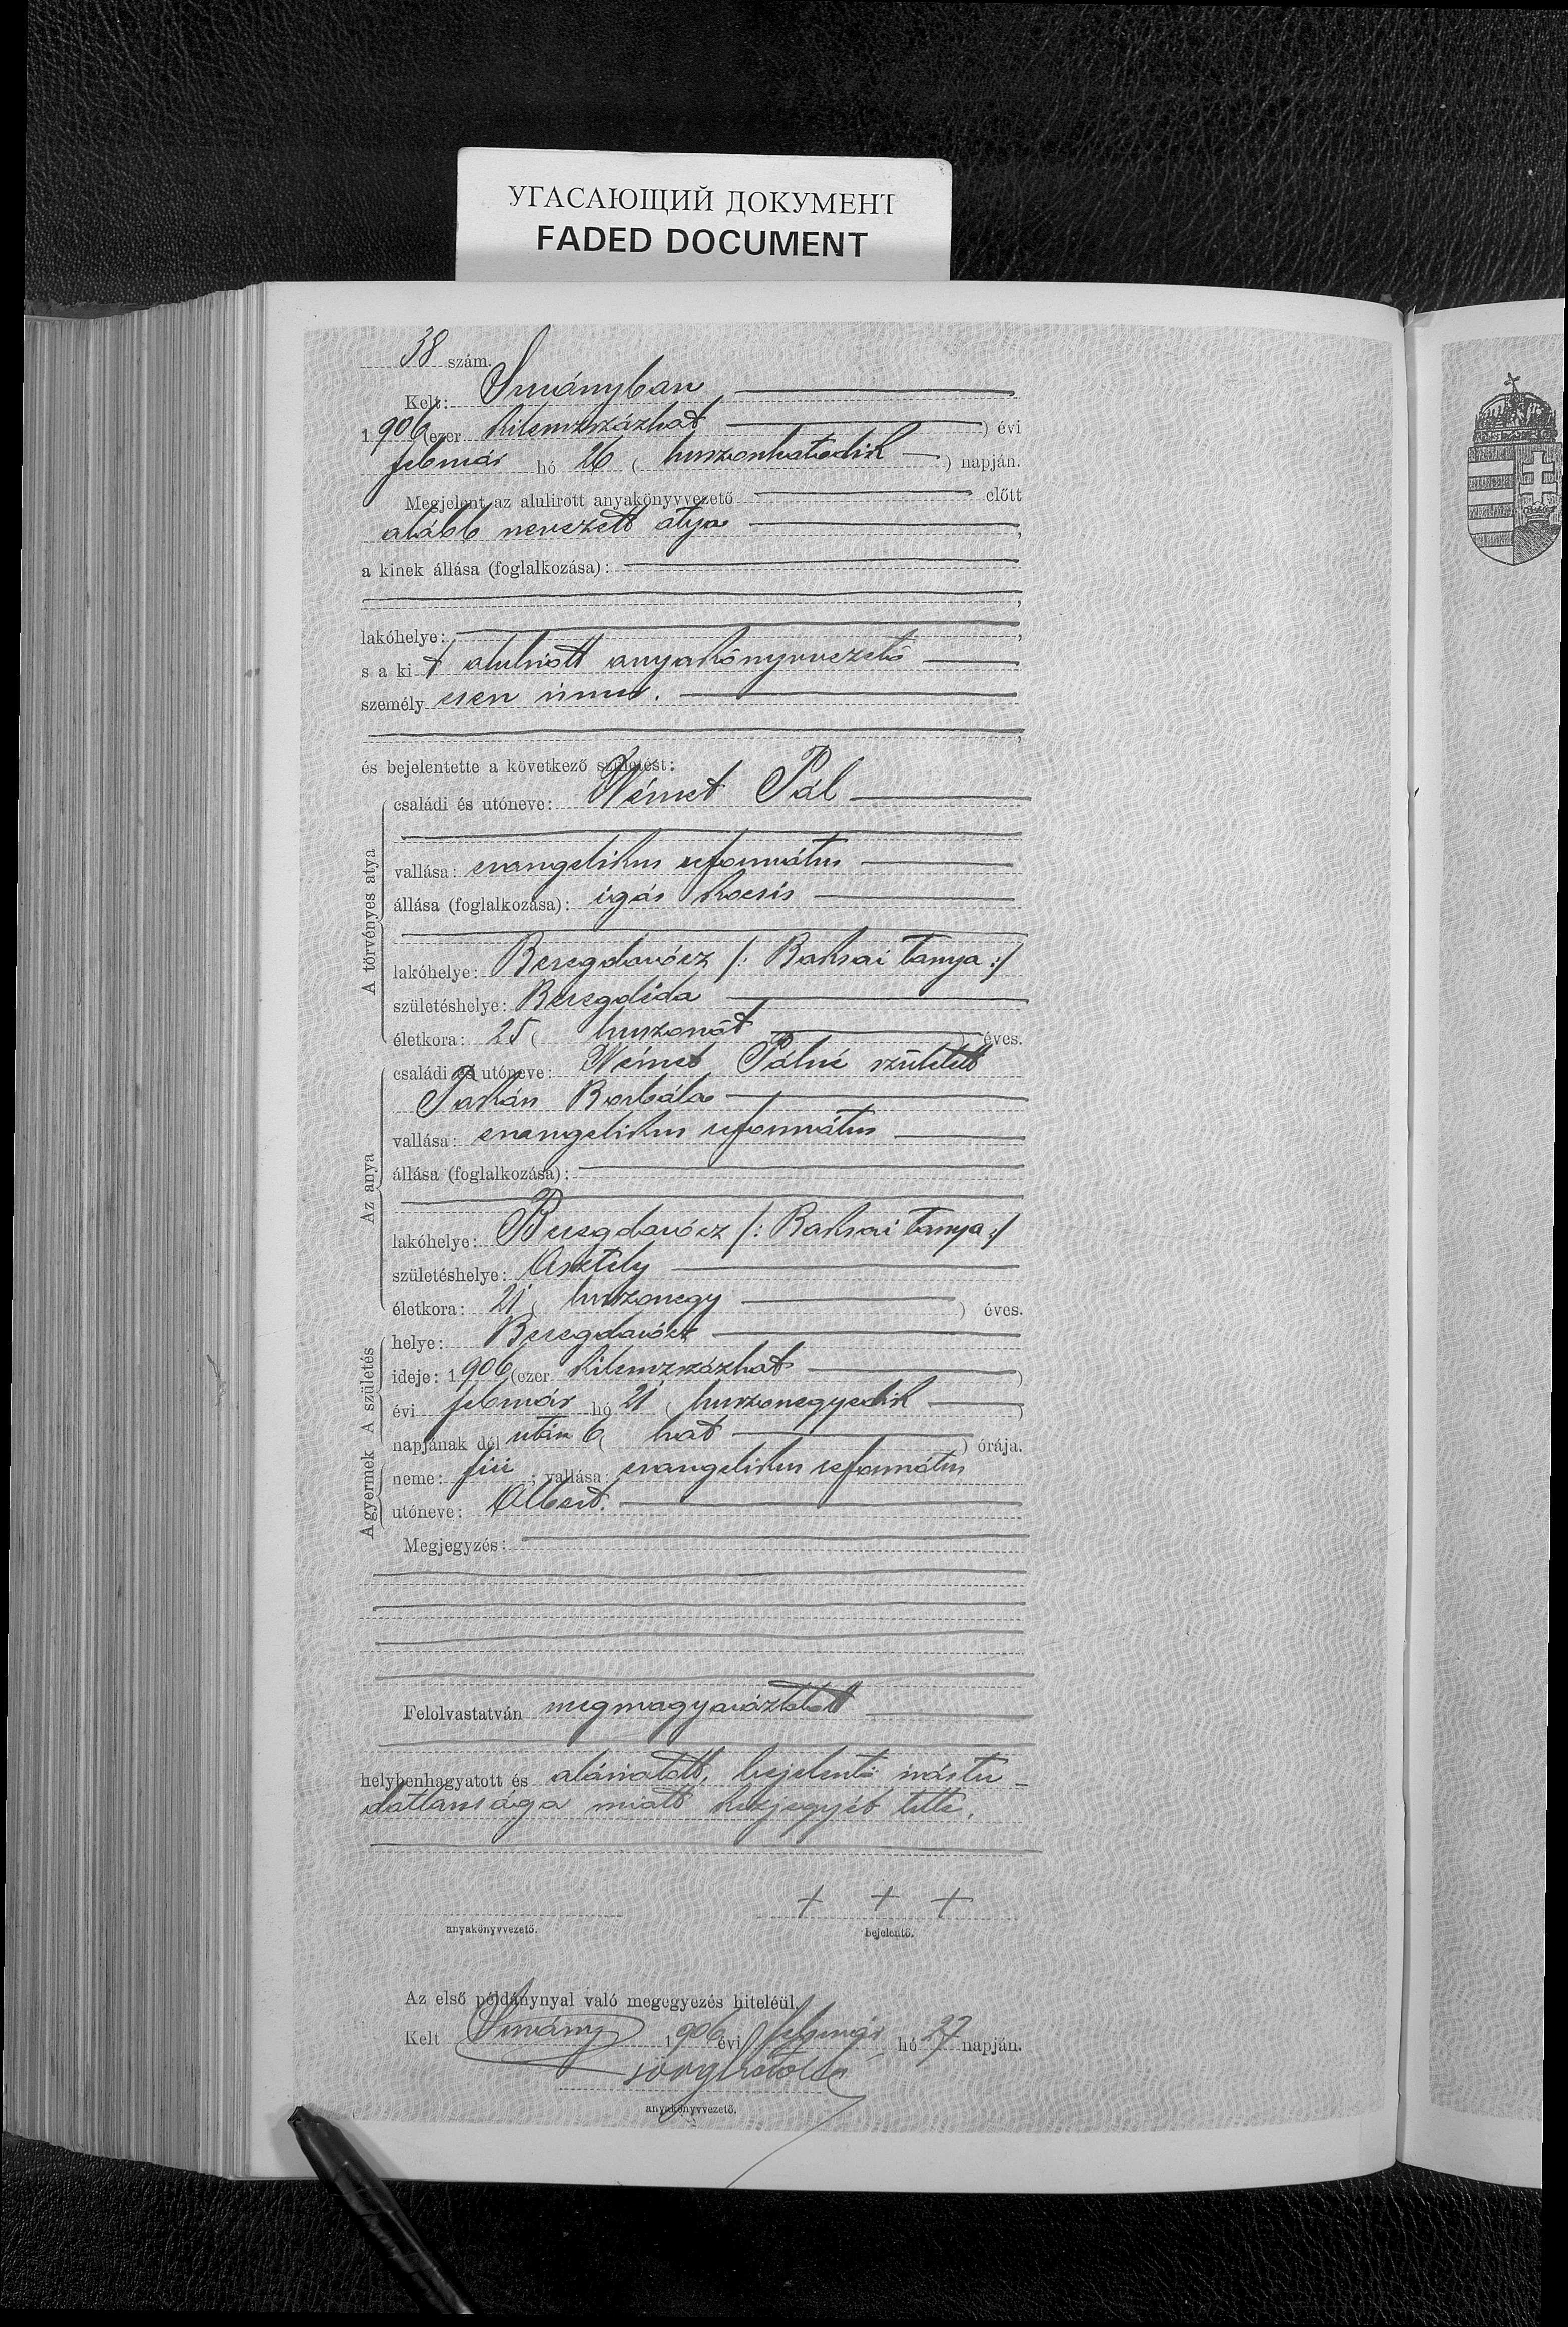 УГАСАЮЩИЙ ДОКУМЕНТ
FADED DOCUMENT
38 szám.
Kelt: Surányban
1906 (ezer kilenczszázhat ) évi
február hó 26 ( huszonhatodik ) napján.
Megjelent az alulirott anyakönyvvezető előtt
alább nevezett atya ,
a kinek állása (foglalkozása):
,
lakóhelye: ,
s a ki t alulirott anyakönyvvezető
személy esen ismer.
,
és bejelentette a következő születést:
A törvényes atya
családi és utóneve: Német Pál
vallása: evangelikus református
állása (foglalkozása): igás kocsis
lakóhelye: Beregdarócz /: Baksai tanya :/
születéshelye: Beregdéda
életkora: 25 ( huszonöt ) éves.
Az anya
családi és utóneve: Német Pálné született
Borbála
vallása: evangelikus református
állása (foglalkozása):
lakóhelye: Beregdarócz /: Baksai tanya :/
születéshelye: Asztély
életkora: 21 ( huszonegy ) éves.
A gyermek A születés
helye: Beregdarócz
ideje: 1906 (ezer kilenczszázhat )
évi február hó 21 ( huszonegyedik )
napjának dél után 6 ( hat ) órája.
neme: fiú ; vallása: evangelikus református
utóneve: Albert.
Megjegyzés:
Felolvastatván megmagyaráztatott
helybenhagyatott és aláiratott, bejelentő irástu-
datlansága miatt kézjegyét tette.
+ + +
anyakönyvvezető. bejelentő.
Az első példánynyal való megegyezés hiteléül.
Kelt Surány 1906 évi február hó 27 napján.
anyakönyvvezető.